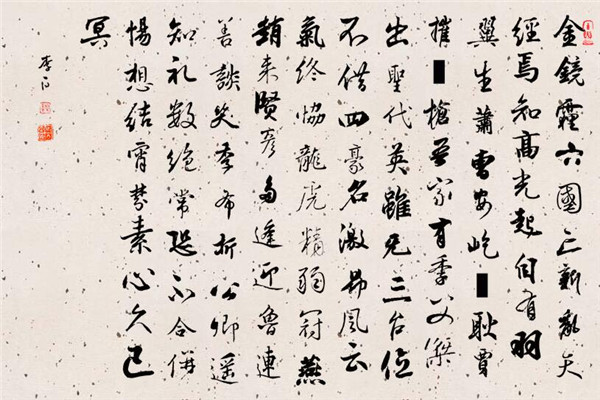 金鏡霾六國亡新亂天
經焉知高光起自有羽
翼生蕭曹安屹█耿賈
摧█槍吾家有季父傑
出聖代英雖无三台位
不借四豪名激昂風云
氣終協龍虎精弱冠燕
趙来賢彥多逢迎魯連
善談笑季布折公卿遥
知礼數絕常恐不合併
惕想結宵夢素心久已
冥
李白